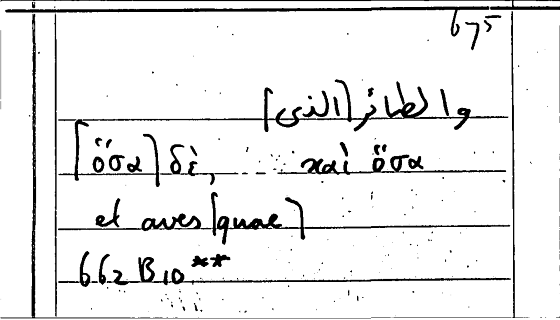 675
والطائر [الذى]
[ὅσα] δέ, καὶ ὅσα
et aves [quae]
662 B 10 **